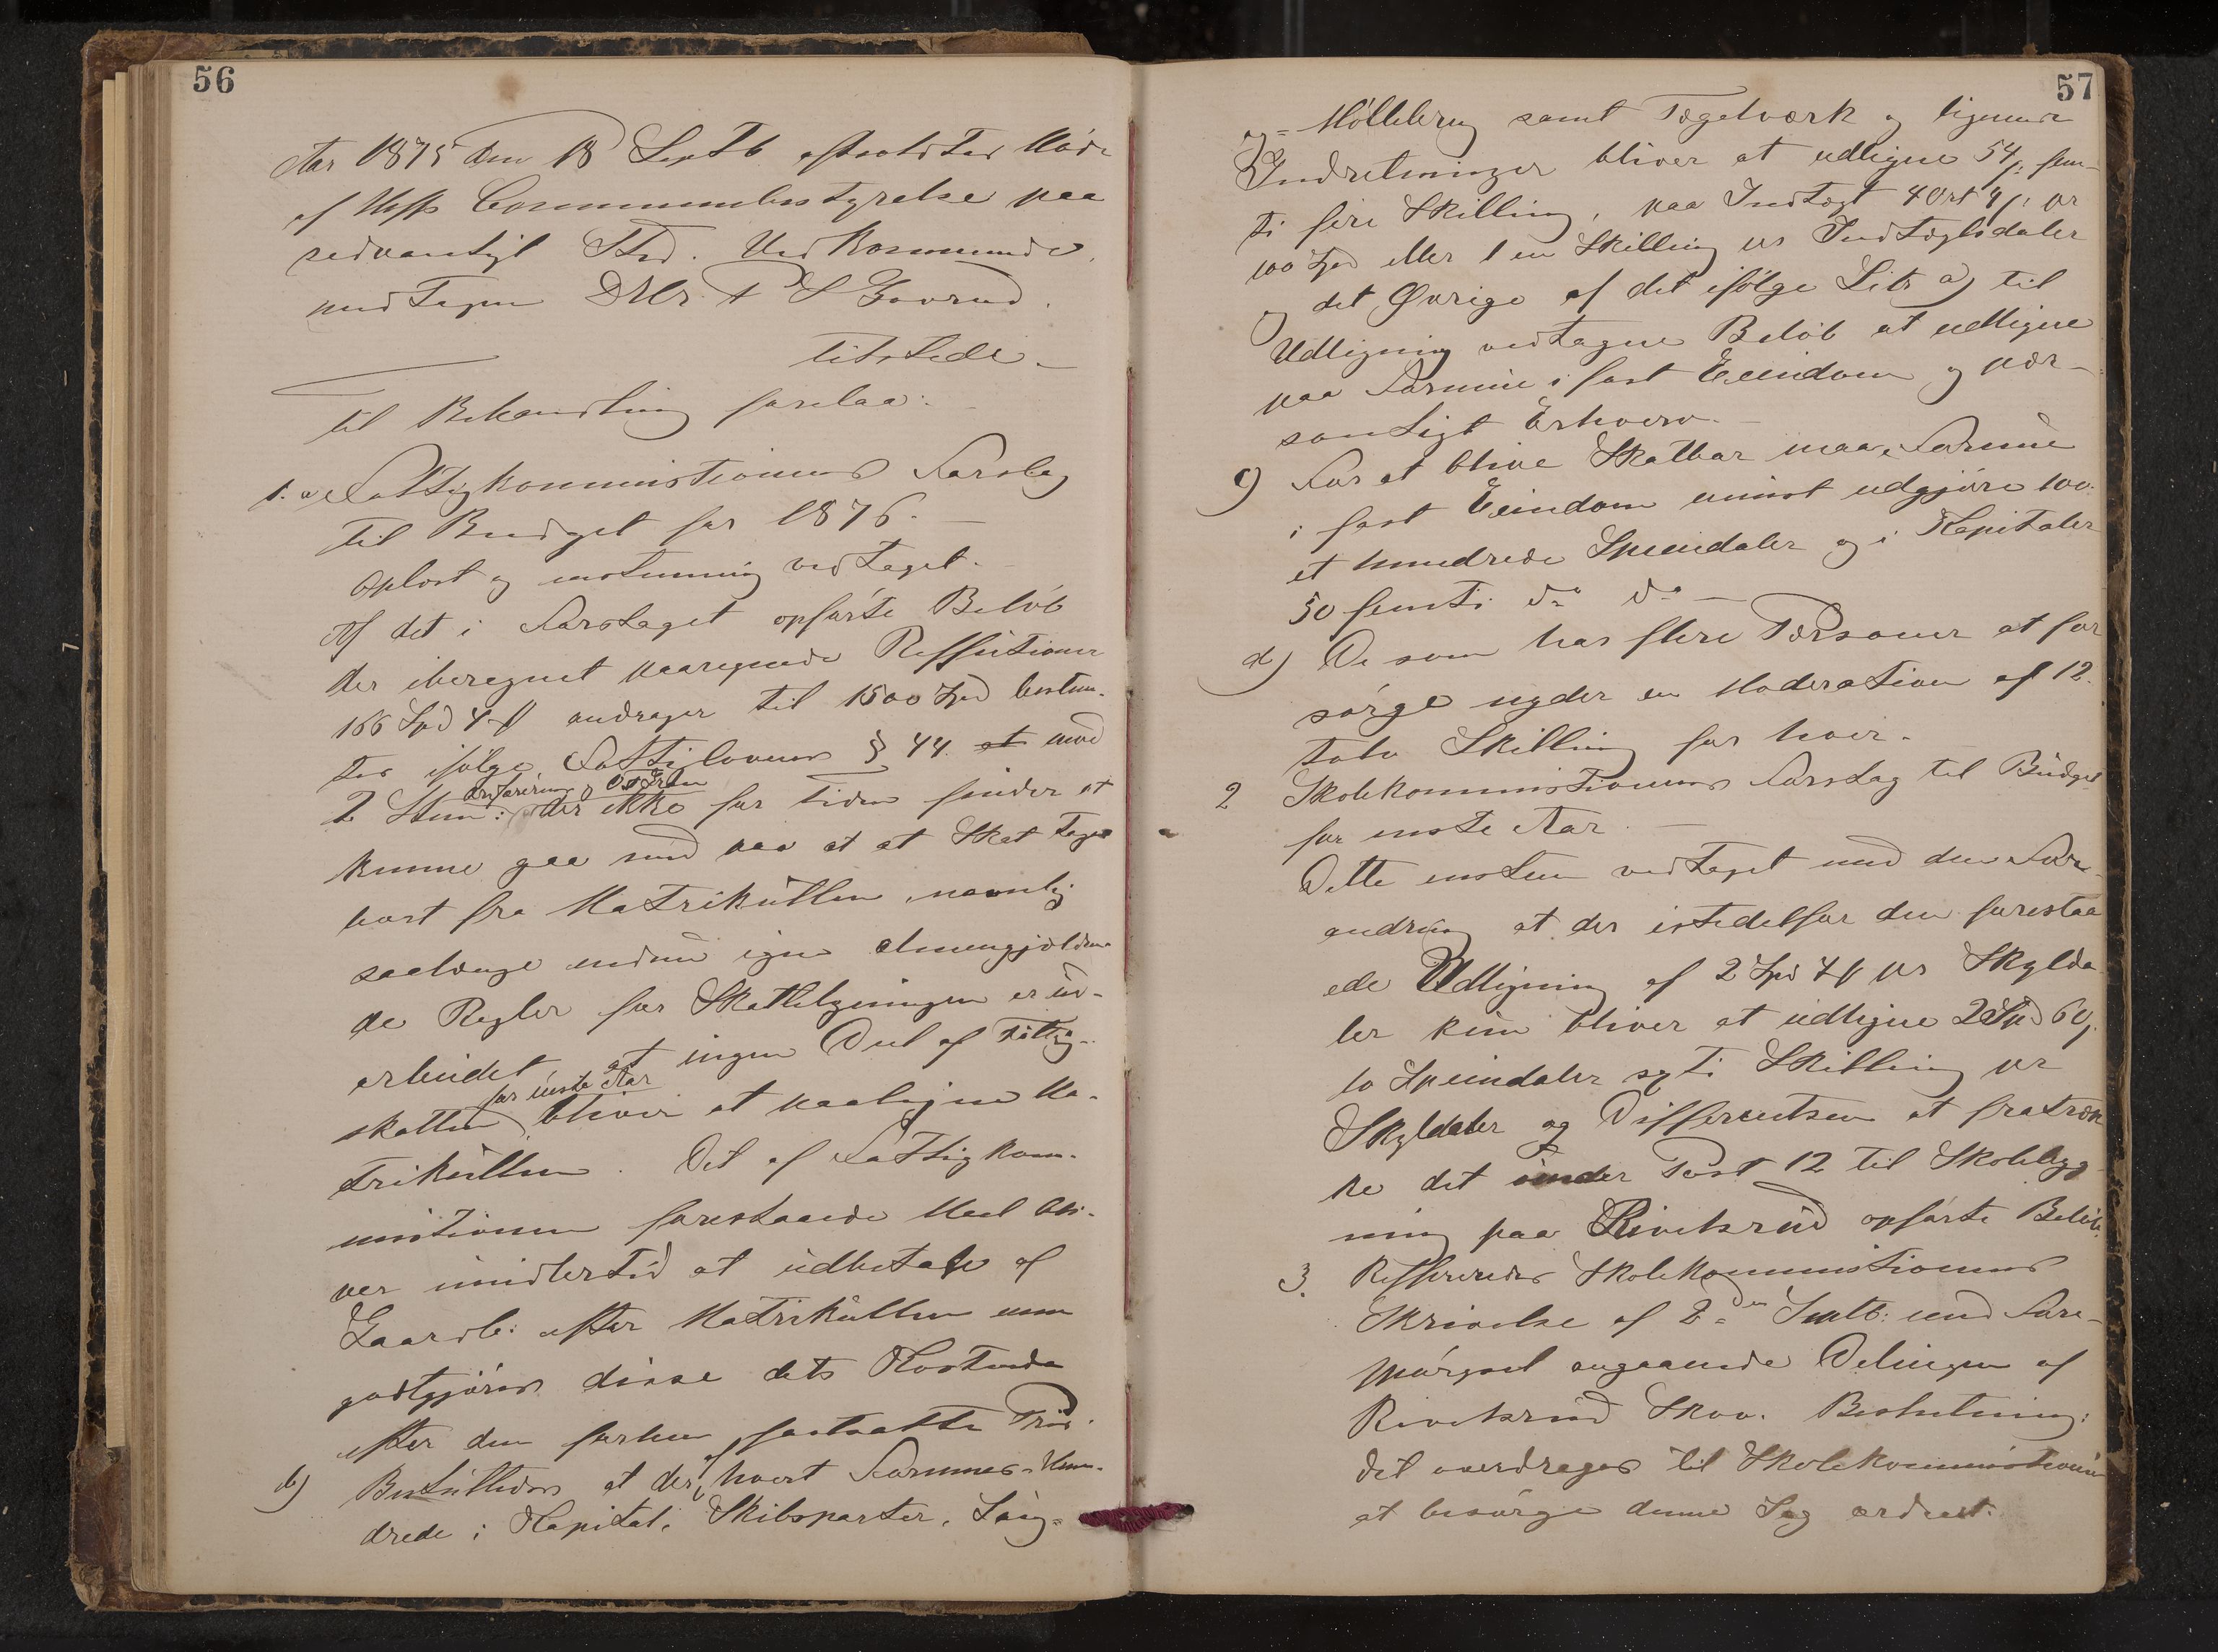 56
Aar 1875 den 18 Septb afholdtes Møde
af Communebestyrelse paa
sedvanligt Sted. Vedkommende
med Tagen
tilstede.
Til Behandling forelaa:
1. a) Fattigkommistionens Forslag
til Budget for 1876. —
Oplæst og enstemmig vedtaget. —
Af det i Forslaget opførte Beløb
der iberegnet paaregnede
166 Spd 4 ß andrager til 1500 Spd bestem-
tes ifølge Fattiglovens § 44 at mod
2 Stem: der ikke for Tiden finder at
kunne gaa ind paa at at Skat tages
bort fra Matrikullen, navnlig
saalænge endnu igen almengjælden-
de Regler for Skatteligningen er ud-
arbeidet at ingen Deel af Fattig-
for næste Aar
skatten bliver at paaligne Ma-
trikullen. Det af Fattigkom-
mistionen forestaaede Meel
ver imidlertid at udbetale af
Gaardb: efter Matrikullen men
godtgjøres disse dets Kostende
efter den forhen fastsatte Priis.
b) Besluttedes at der af hvert Formues-Hun-
drede i Kapital, Skibsparter, Saug-
57
og Møllebrug samt Tegelværk og lignende
Indretninger bliver at udligne 54 ß fem-
ti fire Skilling, paa Indtægt 4 Ort 4 ß pr
100 Spd eller 1 en Skilling pr Indtægtsdaler
og det Øvrige af det ifølge Litr a) til
Udligning vedtagne Beløb at udligne
paa Formue i fast Eiendom og per-
sonligt Erhverv. —
c) For at blive Skatbar maa Formue
i fast Eiendom minst udgjøre 100
et hundrede Speciedaler og i Kapitaler
50 femti do do —
d) De som har flere Personer at for
sørge nyder en Moderation af 12.
tolv Skilling for hver. —
2 Skolekommistionens Forslag til Budget
for næste Aar. —
Dette enstem vedtaget med den For-
andring at der istedetfor den forestaa
ede Udligning af 2 Spd 4 ß pr Skylda
ler kun bliver at udligne 2 Spd 60 ß
to Speciedaler sexti Skilling pr
Skyldaler og Differentsen at fratræk
ke det under Post 12 til Skolebyg-
ning paa opførte Beløb.
3. Reffereredes Skolekommistionens
Skrivelse af 2den Septb: med Fore-
spørgsel angaaende Delingen af
Skov. Beslutning:
Det overdrages til Skolekommistionen
at besørge denne Sag ordnet.